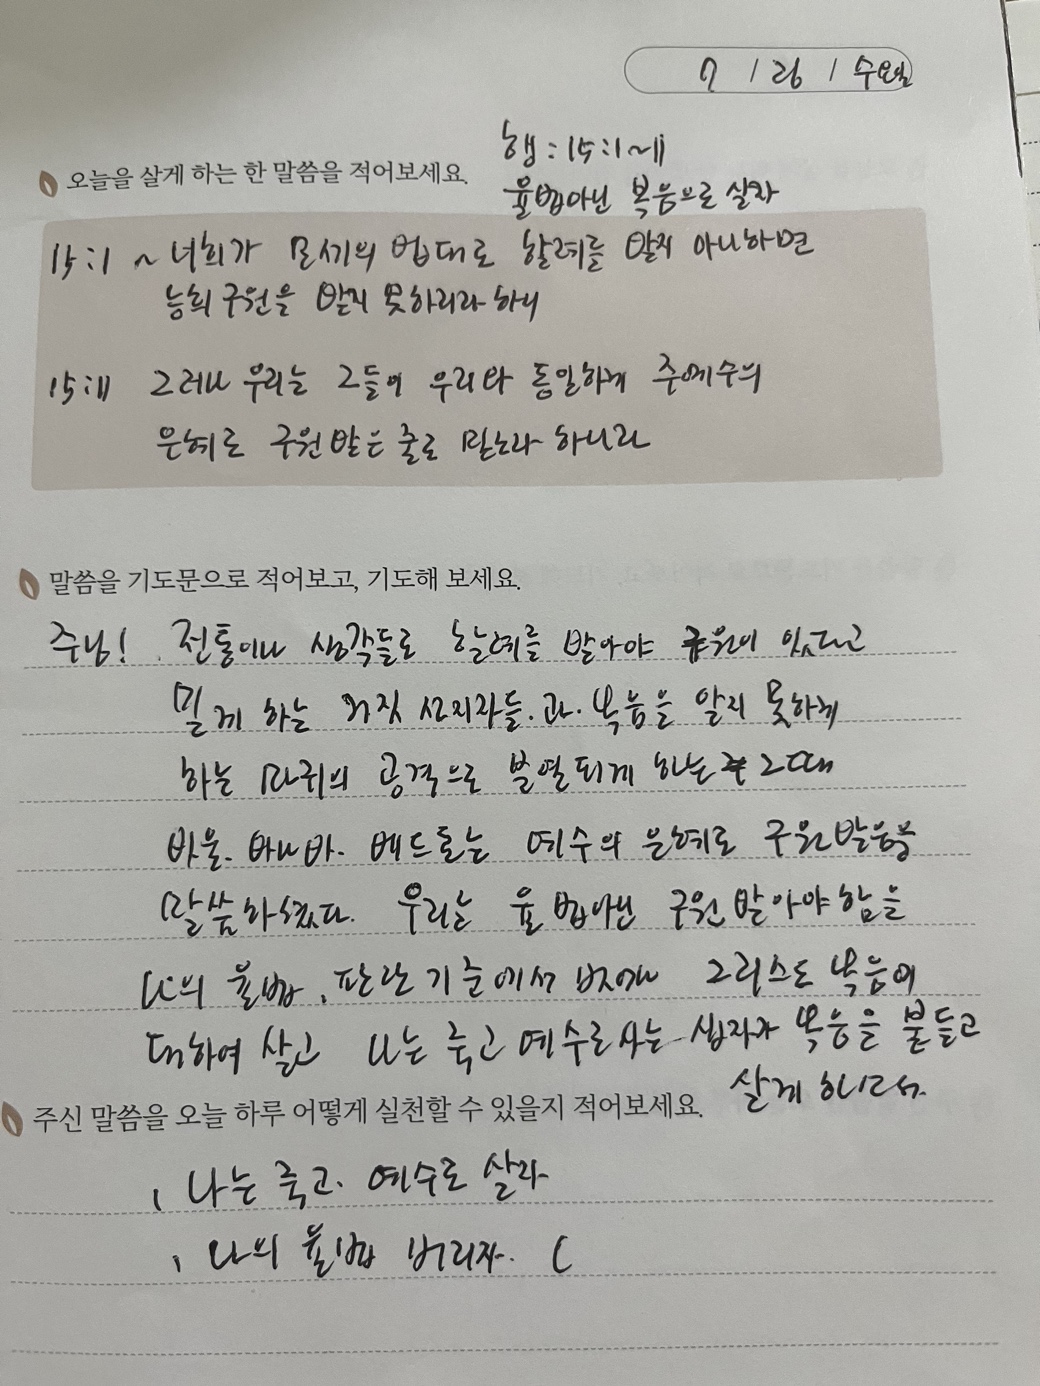 7 / 26 / 수요일
행 : 15 : 1~11
오늘을 살게 하는 한 말씀을 적어보세요.
율법아닌 복음으로 살자
15 : 1 ~ 너희가 모세의 법대로 할례를 받지 아니하면
능히 구원을 받지 못하리라 하니
15 : 11 그러나 우리는 그들이 우리와 동일하게 주예수의
은혜로 구원 받은 줄로 믿노라 하니라
말씀을 기도문으로 적어보고, 기도해 보세요.
주님! 전통이나 생각들로 할례를 받아야 구원이 있다고
믿게 하는 거짓 선지자들. 과. 복음을 알지 못하게
하는 마귀의 공격으로 분열되게 하는 그때
바울. 바나바. 베드로는 예수의 은혜로 구원받음을
말씀하셨다. 우리는 율법아닌 구원 받아야 함을
나의 율법, 판단기준에서 벗어나 그리스도 복음에
대하여 살고 나는 죽고 예수로 사는 십자가 복음을 붙들고
살게 하소서.
주신 말씀을 오늘 하루 어떻게 실천할 수 있을지 적어보세요.
, 나는 죽고. 예수로 살자
, 나의 율법 버리자. (